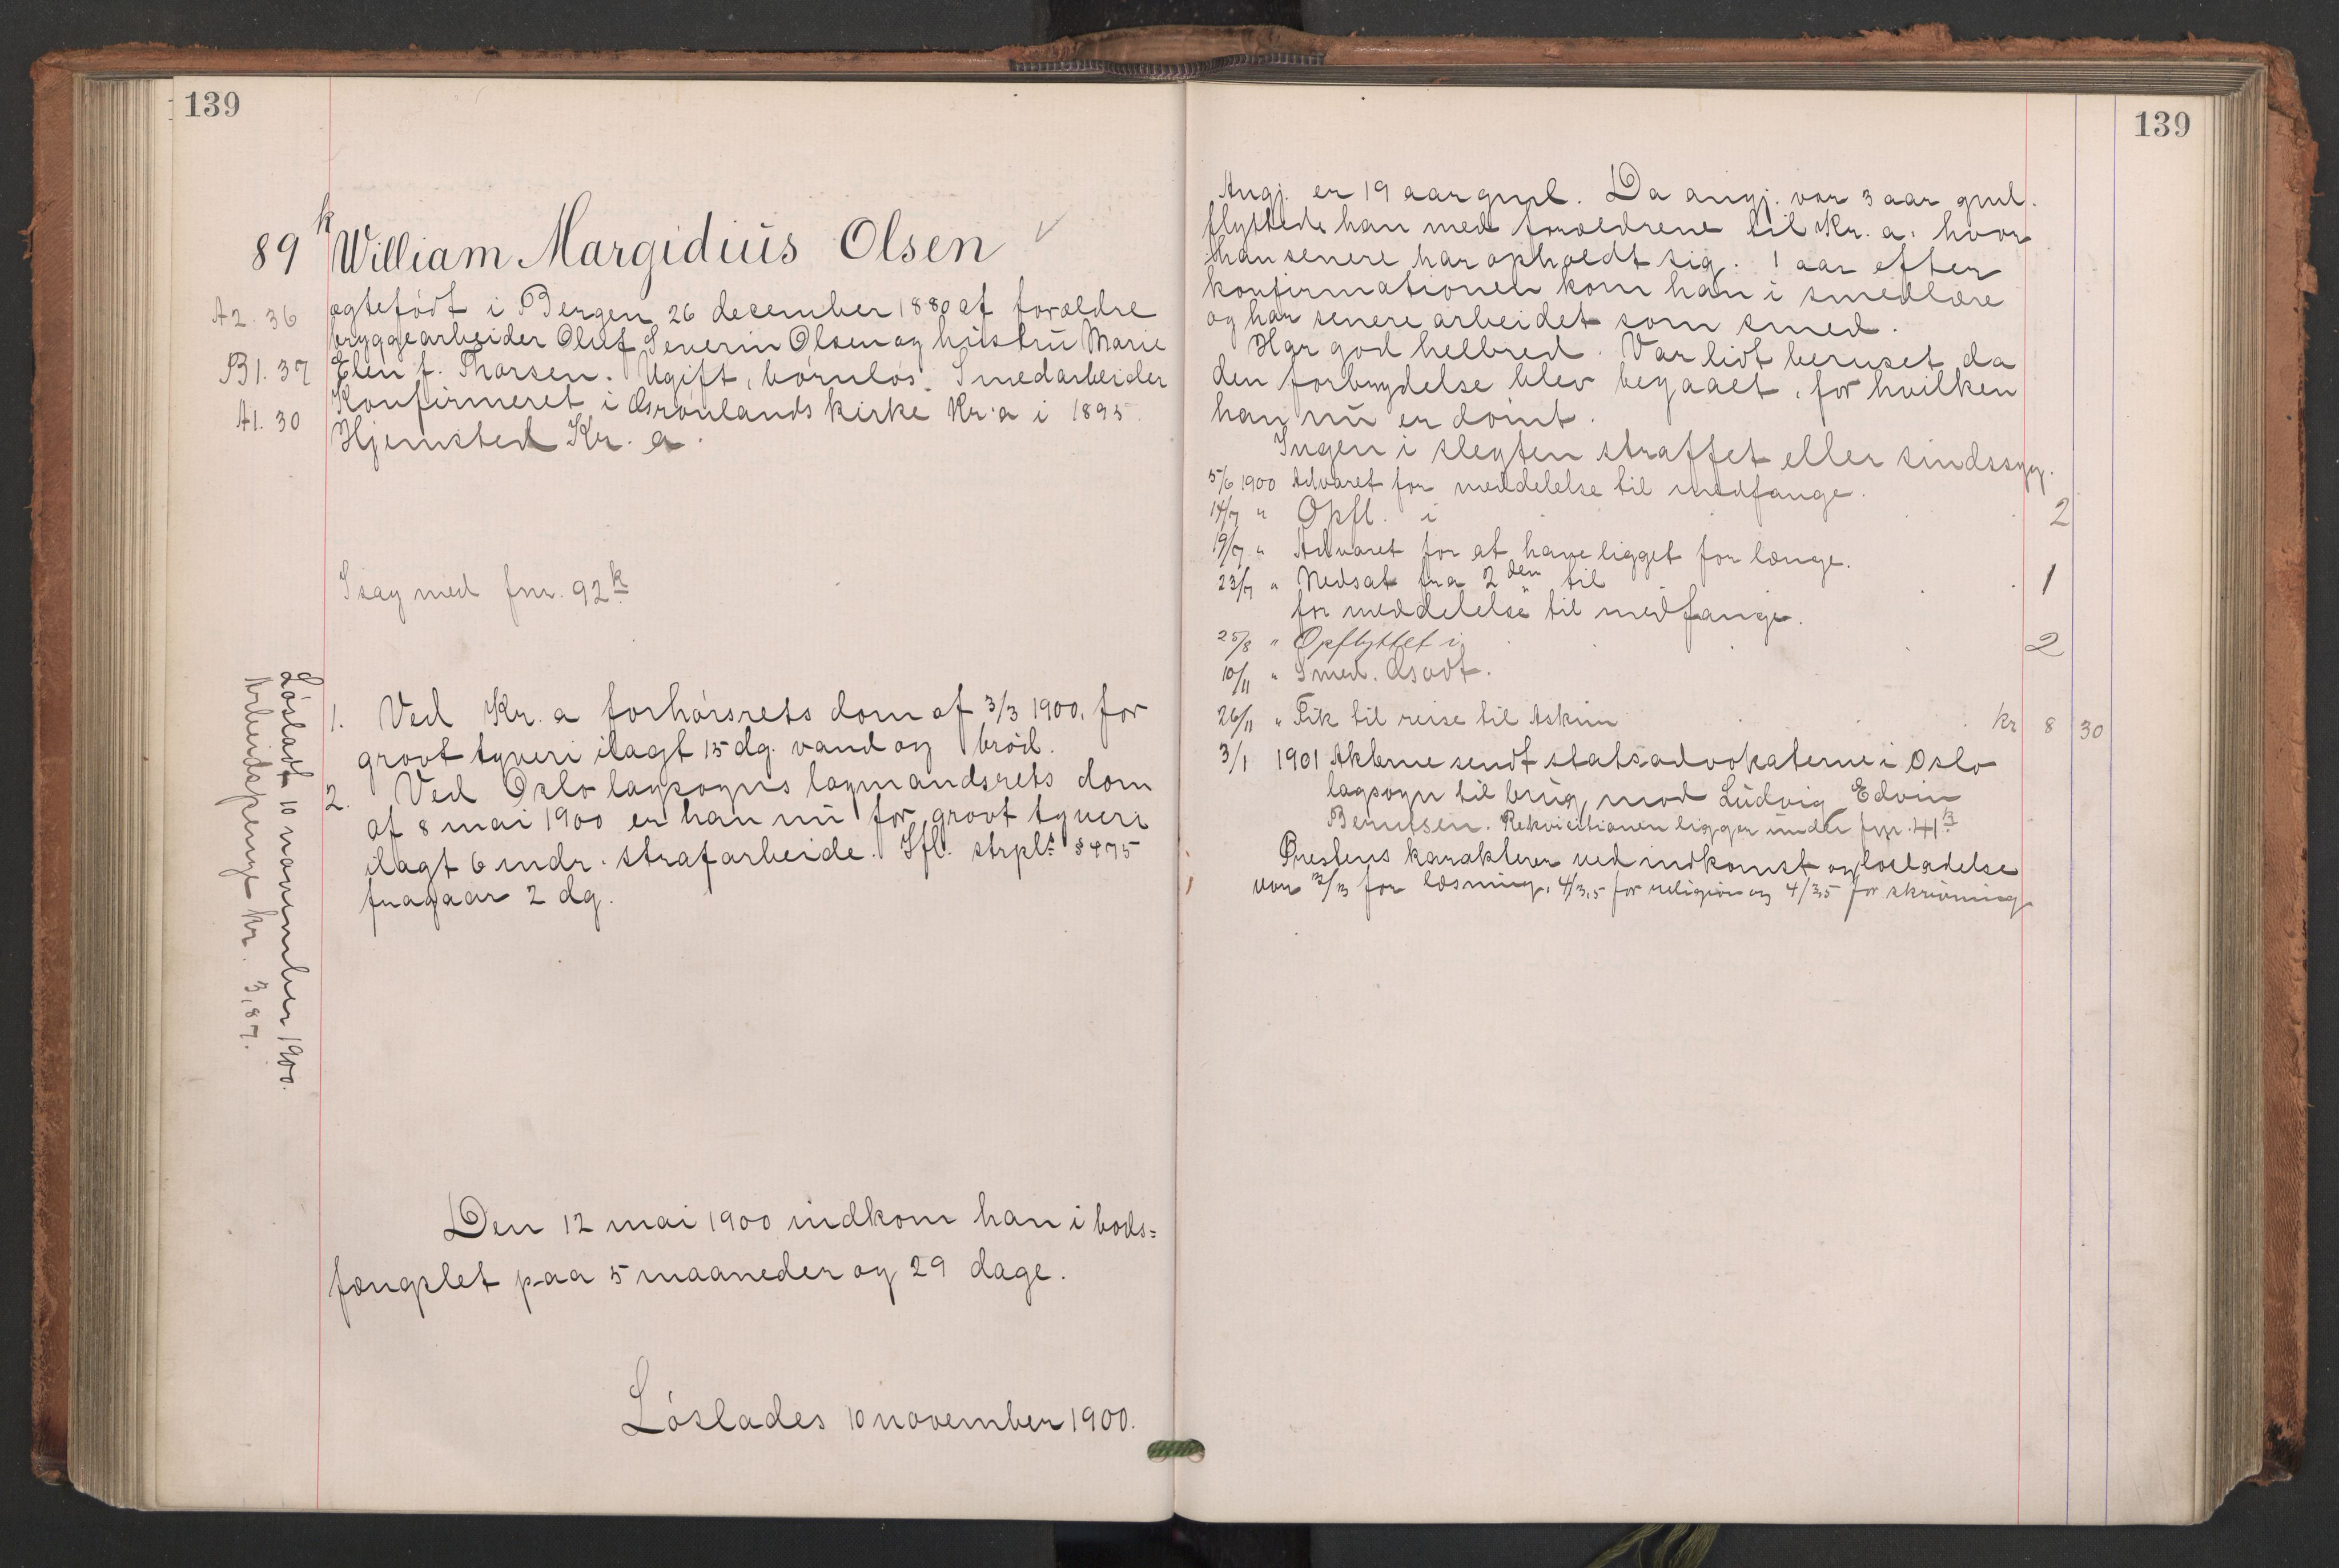 139
89 k William Margidius Olsen
A2. 36
B1. 37
A1. 30
ægtefødt i Bergen 26 december 1880 af forældre
bryggearbeider Oluf Severin Olsen og hustru Marie
Elen f. Thorsen. Ugift, børnløs. Smedarbeider
Konfirmeret i Grønlands kirke Kr. a i 1895.
Hjemsted Kr. a.
I sag med fnr. 92k
1. Ved Kr. a forhørsrets dom af 3/3 1900, for
grovt tyveri ilagt 15 dg. vand og brød.
2. Ved Oslo lagsogns lagmandsrets dom
af 8 mai 1900 er han nu for grovt tyveri
ilagt 6 mdr. strafarbeide. Ifl. strpl. §475
fragaar 2 dg.
Løsladt 10 november 1900.
Arbeidspenge kr. 3,87.
Den 12 mai 1900 indkom han i bods=
fængslet paa 5 maaneder og 29 dage.
Løslades 10 november 1900.
139
Angj. er 19 aar gml. Da angj. var 3 aar gml.
flyttede han med forældrene til Kr. a. hvor
han senere har opholdt sig. 1 aar efter
konfirmationen kom han i smedlære
og har senere arbeidet som smed.
Har god helbred. Var lidt beruset da
den forbrydelse blev begaaet, for hvilken
han nu er dømt.
Ingen i slegten straffet eller sindssyg.
5/6 1900 Advaret for meddelelse til medfange.
14/7 " Opfl. i 2
19/7 " Advaret for at have ligget for længe.
23/7 " Nedsat fra 2den til 1
for meddelelse til medfange.
25/8 " Opflyttet i 2
10/11 " Smed. Godt.
26/11 " Fik til reise til Askim kr 8 30
3/1 1901 Akterne sendt statsadvokaterne i Oslo
lagsogn til brug, mod Ludvig Edvin
Berntsen. Rekvisitionen ligger under fnr. 41
Prestens karakterer ved indkomst og løsladelse
var 3/3 for læsning, 4/3,5 for religion og 4/3,5 for skrivning